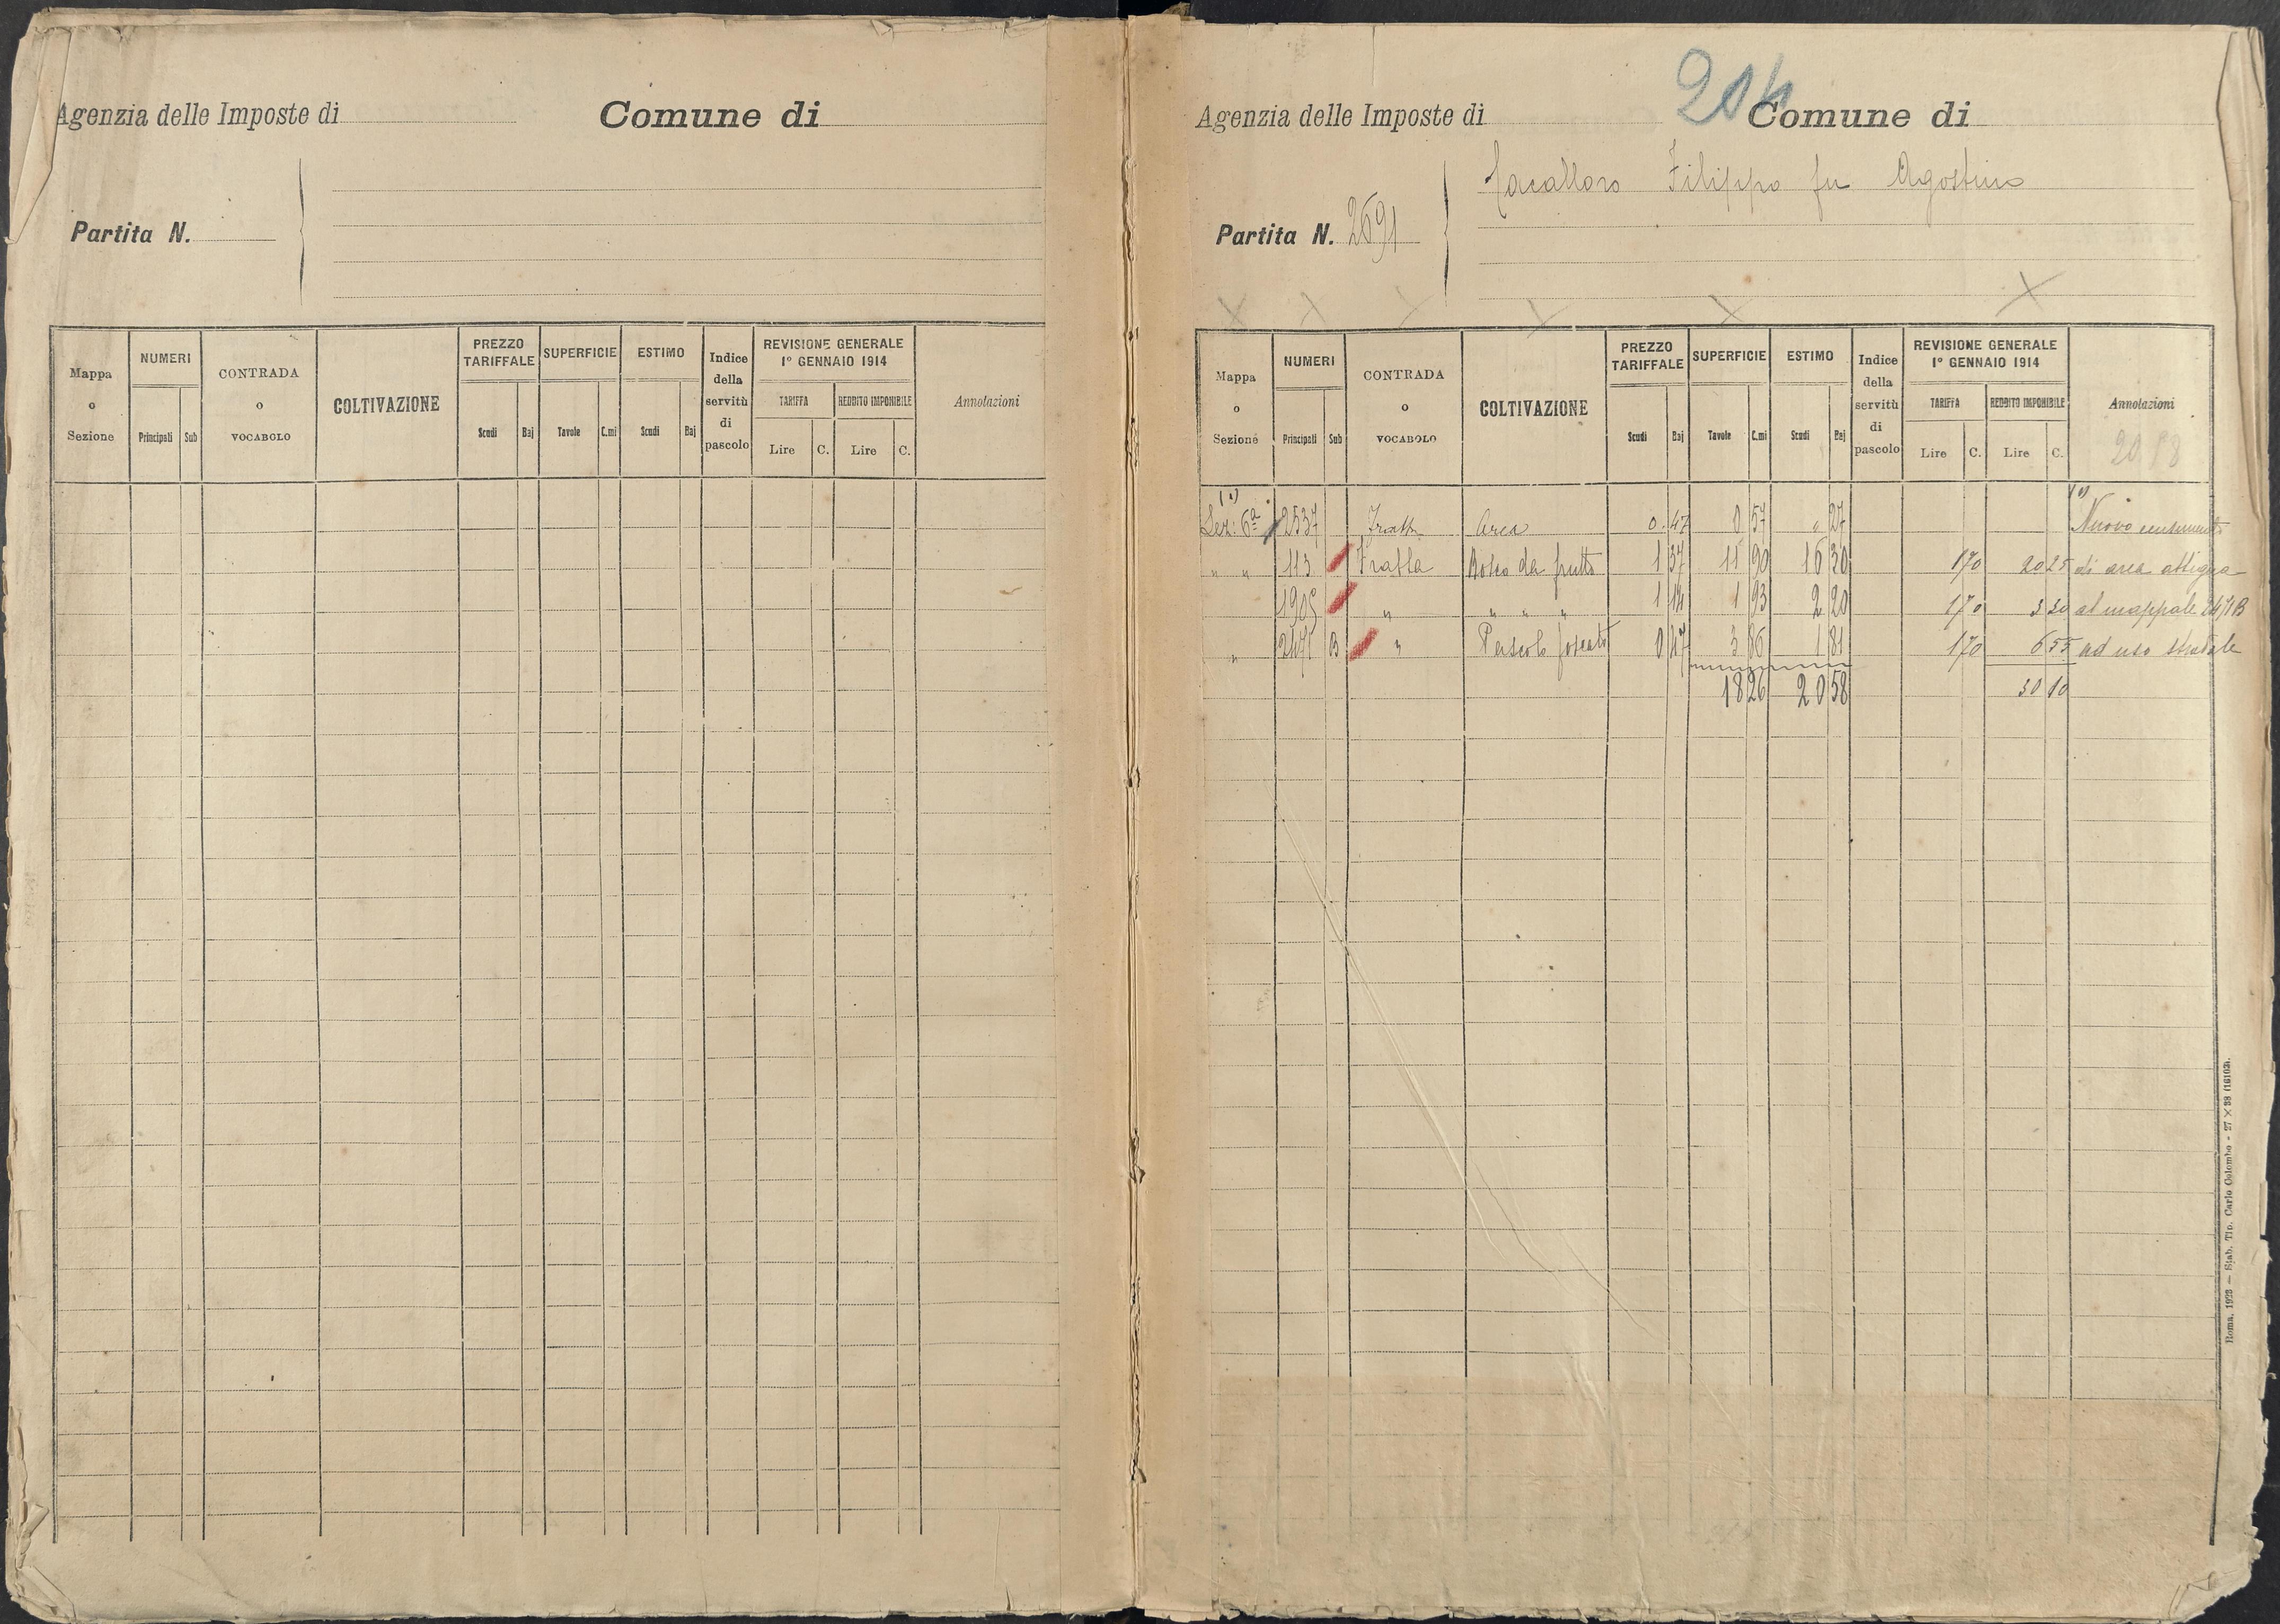 Agenzia delle Imposte di
Comune di
Partita N.
Mappa o Sezione
NUMERI
Principali
Sub
CONTRADA o VOCABOLO
COLTIVAZIONE
PREZZO TARIFFALE
Scudi
Baj
SUPERFICIE
Tavole
C.mi
ESTIMO
Scudi
Baj
Indice della servitù di pascolo
REVISIONE GENERALE 1° GENNAIO 1914
TARIFFA
Lire
C.
REDDITO IMPONIBILE
Lire
C.
Annotazioni
204
Agenzia delle Imposte di
Comune di
Filippo fu Agostino
Partita N. 2691
Mappa o Sezione
NUMERI
Principali
Sub
CONTRADA o VOCABOLO
COLTIVAZIONE
PREZZO TARIFFALE
Scudi
Baj
SUPERFICIE
Tavole
C.mi
ESTIMO
Scudi
Baj
Indice della servitù di pascolo
REVISIONE GENERALE 1° GENNAIO 1914
TARIFFA
Lire
C.
REDDITO IMPONIBILE
Lire
C.
Annotazioni
(1) (1)
Sez: 6ª 2537 Area 0.47 0 57 " 27 Nuovo censimento
" " 113 Bosco da frutto 1 37 11 90 16 30 1 70 20 25 di area attigua
1905 " " " " 1 14 1 93 2 20 1 70 3 30 al mappale 2471 B
" 2471 B " Pascolo 0 47 3 86 1 81 1 70 6 55 ad uso stradale
18 26 20 58 30 10
Roma, 1923 — Stab. Tip. Carlo Colombo - 27 × 38 (16103).